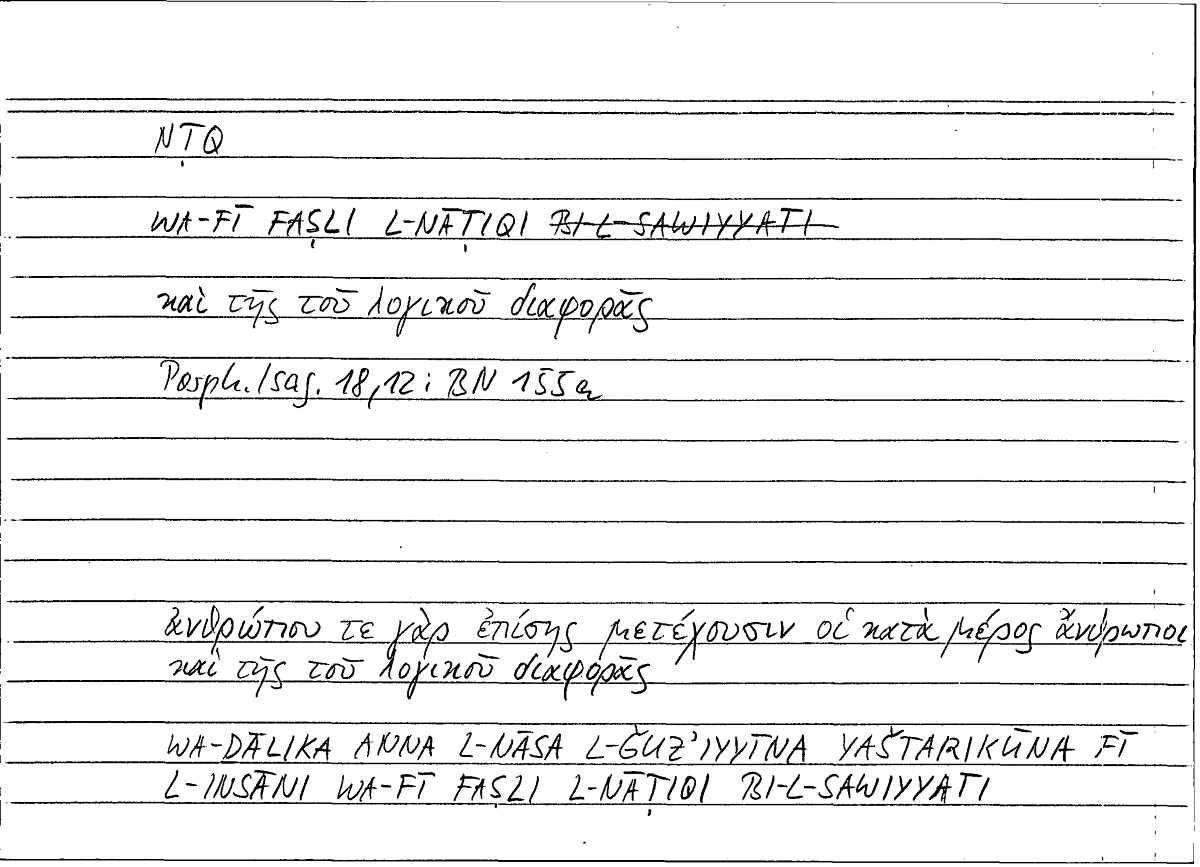 NṬQ
WA-FĪ FAṢLI L-NĀṬIQI ~~BI-L-SAWIYYATI~~
καὶ τῆς τοῦ λογικοῦ διαφορᾶς
Porph. Isag. 18,12; BN 155a
ἀνθρώπου τε γὰρ ἐπίσης μετέχουσιν οἱ κατὰ μέρος ἄνθρωποι
καὶ τῆς τοῦ λογικοῦ διαφορᾶς
WA-DĀLIKA ANNA L-NĀSA L-ǦUZ'IYYĪNA YAŠTARIKŪNA FĪ
L-INSĀNI WA-FĪ FAṢLI L-NĀṬIQI BI-L-SAWIYYATI